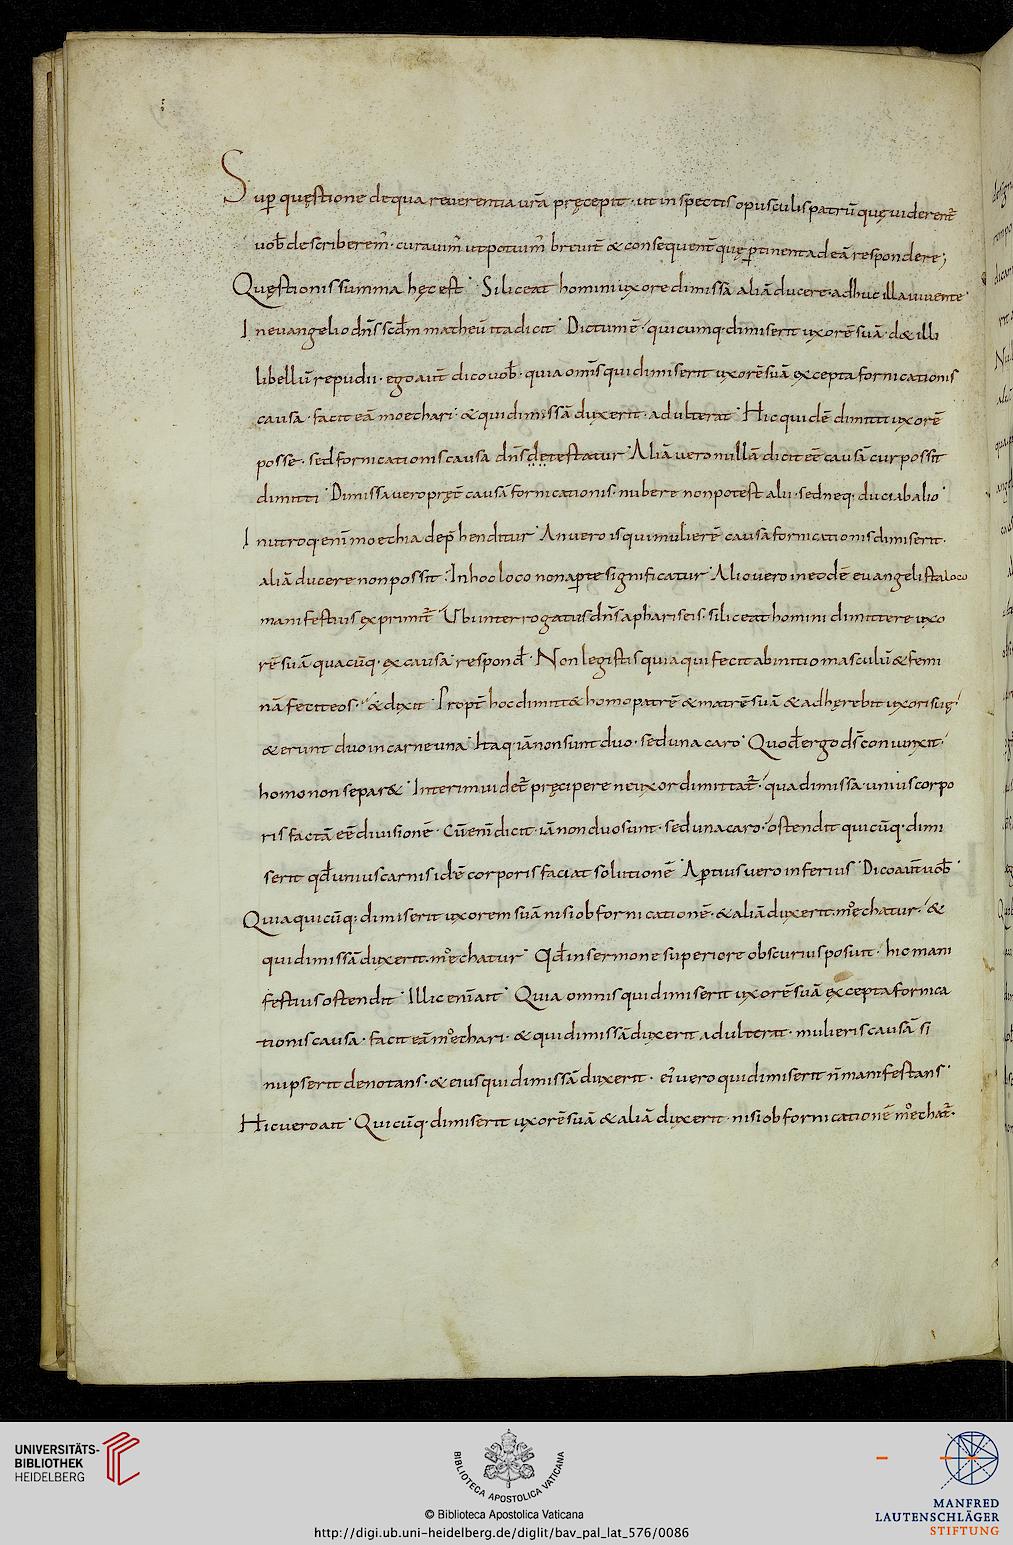 Sup quęstione dequa reuerentia urā pręcepit · ut inspectis opusculis patrū quę uiderent̄
uob̄ describerem̄ · curauim̄ utpotuim̄ breuit̄ & consequent̄ quę ptinent adeā respondere;
Quęstionis summa hęc est · Siliceat homini uxore dimissa aliā ducere · adhuc illa uiuente ·
Ineuangelio dn̄s scdm̄ matheū ita dicit · Dictum ē · quicumq · dimiserit uxorē suā · d& illi
libellū repudii · ego aut̄ dico uob̄ · quia om̄s qui dimiserit uxorē suā excepta fornicationis
causa · facit eā moechari · & qui dimissā duxerit · adulterat · Hic quidē dimitti uxorē
posse · sed fornicationis causa dn̄s detestatur · Aliā uero nullā dicit eē causā cur possit
dimitti · Dimissa uero pręt̄ causā fornicationis · nubere non potest alii · sedneq · duci ab alio ·
Inutroq · enī moechia dep̄henditur · An uero is qui mulierē causā fornicationis dimiserit ·
aliā ducere non possit · Inhoc loco non apte significatur · Alio uero ineodē euangelista loco
manifestius exprimit̄ · Ubi interrogatus dn̄s aphariseis · siliceat homini dimittere uxo
rē suā quacūq · ex causa respond̄ · Non legistis quia qui fecit abinitio masculū & femi
nā fecit eos · & dixit · Propt̄ hoc dimitt& homo patrē & matrē suā & adhęrebit uxori suę ·
& erunt duo in carne una · Itaq · iā non sunt duo · sed una caro · Quod̄ ergo ds̄ coniunxit ·
homo non separ& · Interim uidet̄ pręcipere ne uxor dimittat̄ · qua dimissa · unius corpo
ris factā eē diuisionē · Cū enī dicit · iā non duo sunt · sed una caro · ostendit quicūq · dimi
serit qd̄ unius carnis idē corporis faciat solutionē · Aptius uero inferius · Dico aut̄ uob̄ ·
Quia quicūq · dimiserit uxorem suā nisi ob fornicationē · & aliā duxerit · moechatur · &
qui dimissā duxerit · moechatur · Qd̄ in sermone superiore obscurius posuit · hic mani
festius ostendit · Illic enī ait · Quia omnis qui dimiserit uxorē suā excepta fornica
tionis causa · facit eā moechari · & qui dimissā duxerit adulterat · mulieris causā si
nupserit denotans · & eius qui dimissā duxerit · ei uero qui dimiserit n̄ manifestans ·
Hic uero ait · Quicūq · dimiserit uxorē suā & aliā duxerit · nisi ob fornicationē moechat̄ ·
UNIVERSITÄTS-
BIBLIOTHEK
HEIDELBERG
BIBLIOTECA APOSTOLICA VATICANA
© Biblioteca Apostolica Vaticana
http://digi.ub.uni-heidelberg.de/diglit/bav_pal_lat_576/0086
MANFRED
LAUTENSCHLÄGER
STIFTUNG